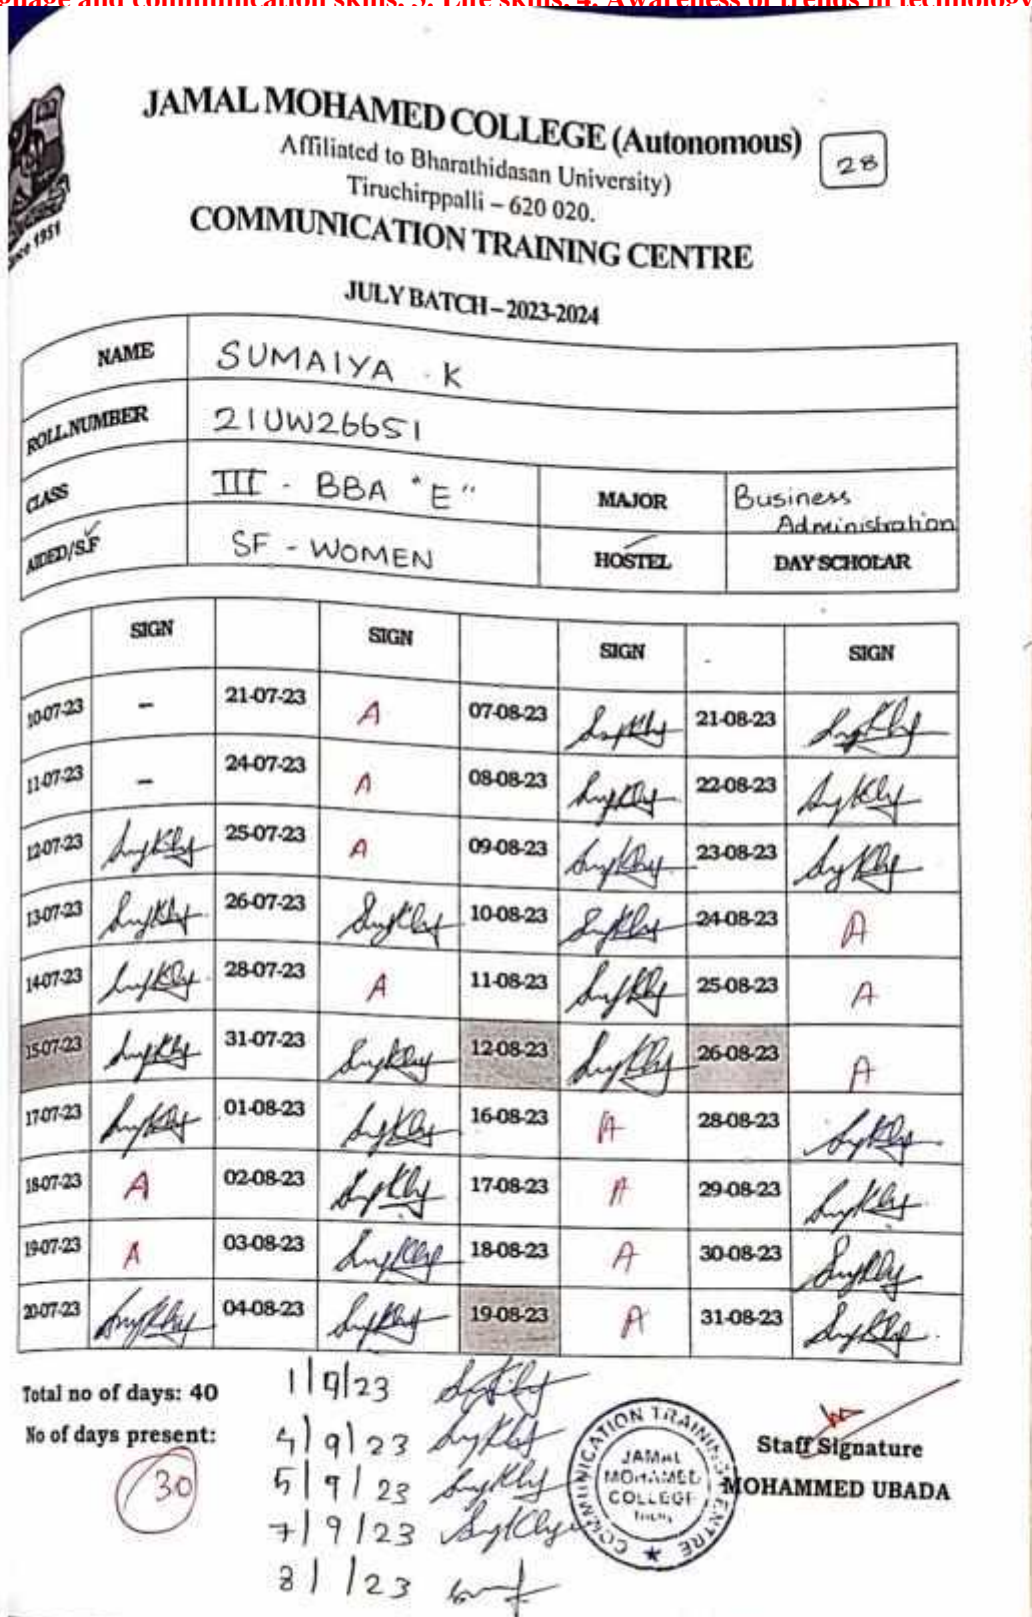 guage and communication skills. 3. Life skills. 4. Awareness of trends in technology
JAMAL MOHAMED COLLEGE (Autonomous)
28
Affiliated to Bharathidasan University)
Tiruchirppalli – 620 020.
since 1951
COMMUNICATION TRAINING CENTRE
JULY BATCH – 2023-2024
NAME SUMAIYA . K
ROLL NUMBER 21UW26651
CLASS III - BBA "E" MAJOR Business Administration
AIDED/S.F SF - WOMEN HOSTEL DAY SCHOLAR
SIGN SIGN SIGN SIGN
10-07-23 – 21-07-23 A 07-08-23 21-08-23
11-07-23 – 24-07-23 A 08-08-23 22-08-23
12-07-23 25-07-23 A 09-08-23 23-08-23
13-07-23 26-07-23 10-08-23 24-08-23 A
14-07-23 28-07-23 A 11-08-23 25-08-23 A
15-07-23 31-07-23 12-08-23 26-08-23 A
17-07-23 01-08-23 16-08-23 A 28-08-23
18-07-23 A 02-08-23 17-08-23 A 29-08-23
19-07-23 A 03-08-23 18-08-23 A 30-08-23
20-07-23 04-08-23 19-08-23 A 31-08-23
Total no of days: 40
No of days present:
30
1/9/23
4/9/23
5/9/23
7/9/23
8/ /23
COMMUNICATION TRAINING CENTRE
JAMAL
MOHAMED
COLLEGE
Staff Signature
MOHAMMED UBADA